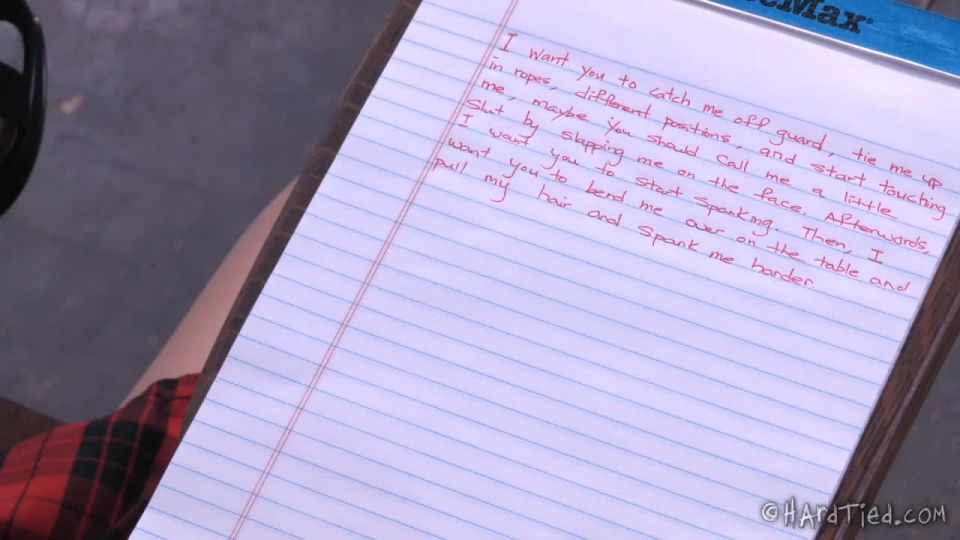 ceMax
I want you to catch me off guard, tie me up
in ropes, different positions, and start touching
me, maybe you should call me a little
slut by slapping me on the face. Afterwards,
I want you to start spanking. Then, I
want you to bend me over on the table and
pull my hair and spank me harder
©HARDTIED.COM